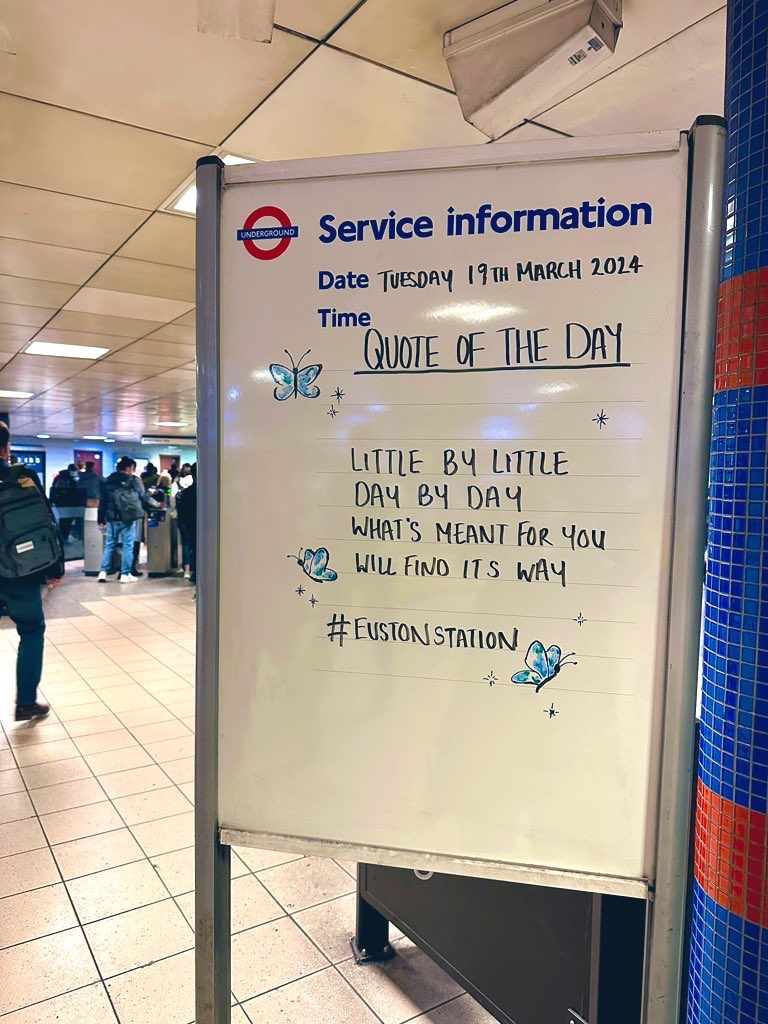 UNDERGROUND
Service information
Date TUESDAY 19TH MARCH 2024
Time
QUOTE OF THE DAY
LITTLE BY LITTLE
DAY BY DAY
WHAT'S MEANT FOR YOU
WILL FIND ITS WAY
#EUSTONSTATION